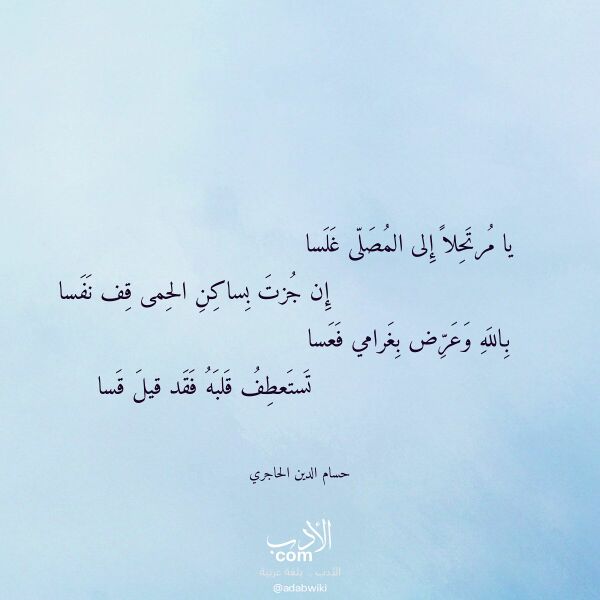 يا مُرتَحِلاً إِلى المُصَلّى غَلَسا
إِن جُزتَ بِساكِنِ الحِمى قِف نَفَسا
بِاللَهِ وَعَرِّض بِغَرامي فَعَسا
تَستَعطِفُ قَلبَهُ فَقَد قيلَ قَسا
حسام الدين الحاجري
الأدب
com
الأدب .. بلغة عربية
@adabwiki